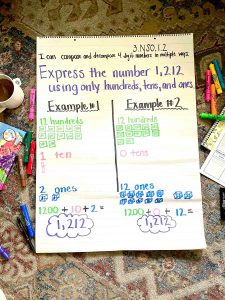 3.NSO.1.2
I can compose and decompose 4 digit numbers in multiple ways.
Express the number 1,212
using only hundreds, tens, and ones.
Example #1
12 hundreds
1 ten
2 ones
1200 + 10 + 2 =
1,212
Example #2
12 hundreds
0 tens
12 ones
1200 + 0 + 12 =
1,212